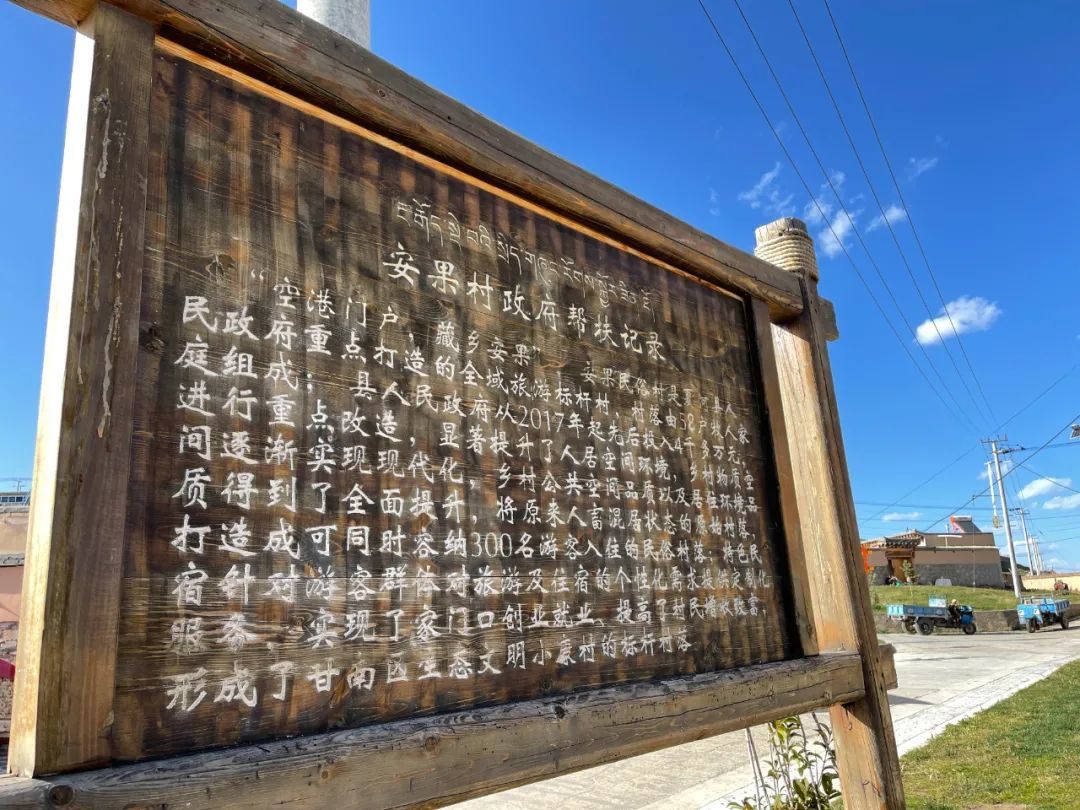 སྡེ་བའི་སྲིད་གཞུང་རོགས་སྐྱོར་ཟིན་ཐོ།
安果村政府帮扶记录
“空港门户，藏乡安果” 安果民俗村是夏河县人
民政府重点打造的全域旅游标杆村，村落由58户牧人家
庭组成；县人民政府从2017年起先后投入4千多万元，
进行重点改造，显著提升了人居空间环境，乡村物质空
间逐渐实现现代化，乡村公共空间品质以及居住环境品
质得到了全面提升，将原来人畜混居状态的原始村落，
打造成可同时容纳300名游客入住的民俗村落；特色民
宿针对游客群体对旅游及住宿的个性化需求提供定制化
服务，实现了家门口创业就业，提高了村民增收致富，
形成了甘南区生态文明小康村的标杆村落